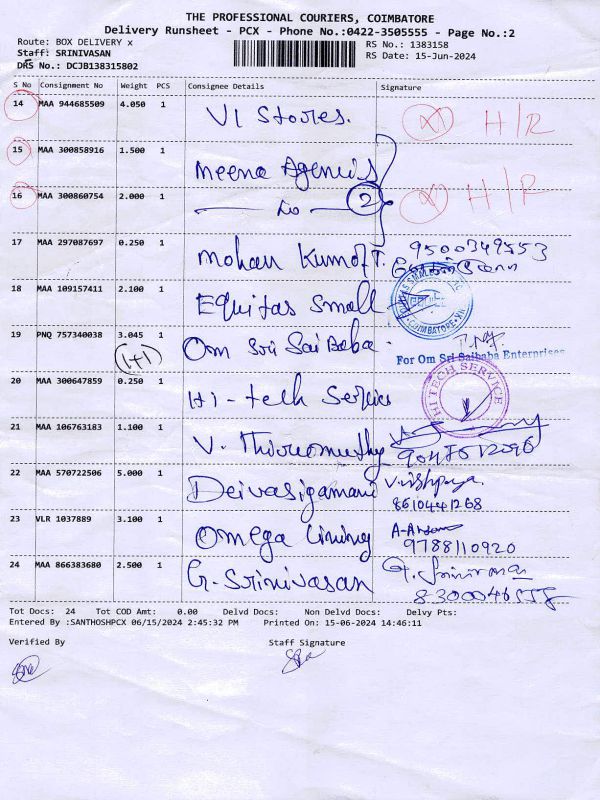 THE PROFESSIONAL COURIERS, COIMBATORE
Delivery Runsheet - PCX - Phone No.:0422-3505555 - Page No.:2
Route: BOX DELIVERY x
RS No.: 1383158
Staff: SRINIVASAN
RS Date: 15-Jun-2024
DRS No.: DCJB138315802
S No Consignment No Weight PCS Consignee Details Signature
14 MAA 944685509 4.050 1 VI Stores. H/R
15 MAA 300858916 1.500 1 Meena Agencies
16 MAA 300860754 2.000 1 2 H/R
17 MAA 297087697 0.250 1 Mohan Kumar T. 9500349553
18 MAA 109157411 2.100 1 Equitas Small
COIMBATORE
19 PNQ 757340038 3.045 1 Om Sri Sai Baba.
(1+1) For Om Sri Saibaba Enterprises
20 MAA 300647859 0.250 1 Hi-tech Service HITECH SERVICE
21 MAA 106763183 1.100 1 V. Thirumuthy
22 MAA 570722506 5.000 1 Deivasigamani
8610441268
23 VLR 1037889 3.100 1 Omega Lining
9788110920
24 MAA 866383680 2.500 1 G. Srinivasan G. Srinivasan
Tot Docs: 24 Tot COD Amt: 0.00 Delvd Docs: Non Delvd Docs: Delvy Pts:
Entered By :SANTHOSHPCX 06/15/2024 2:45:32 PM Printed On: 15-06-2024 14:46:11
Verified By Staff Signature